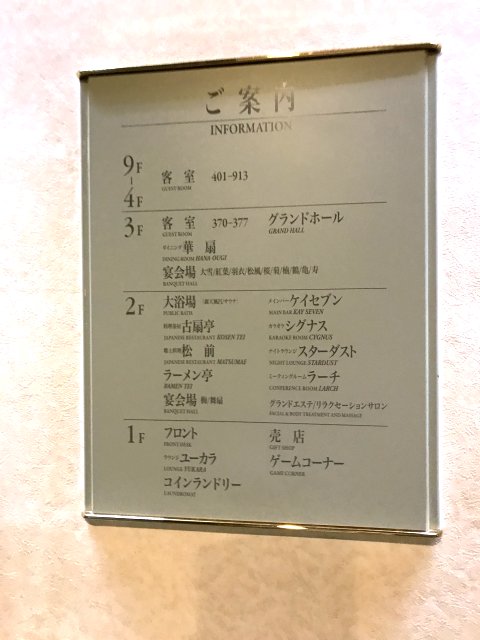 ご案内
INFORMATION
9F
客室 401-913
GUEST ROOM
4F
3F 客室 370-377 グランドホール
GUEST ROOM GRAND HALL
ダイニング 華扇
DINING ROOM HANA-OUGI
宴会場 大雪/紅葉/羽衣/松風/桜/菊/楠/鶴/亀/寿
BANQUET HALL
2F 大浴場 (露天風呂/サウナ) メインバー ケイセブン
PUBLIC BATH MAIN BAR KAY SEVEN
古扇亭 カラオケ シグナス
JAPANESE RESTAURANT KOSEN TEI KARAOKE ROOM CYGNUS
郷土料理 松前 ナイトラウンジ スターダスト
JAPANESE RESTAURANT MATSUMAE NIGHT LOUNGE STARDUST
ラーメン亭 ミーティングルーム ラーチ
RAMEN TEI CONFERENCE ROOM LARCH
宴会場 梅/舞扇 グランドエステ/リラクセーションサロン
BANQUET HALL FACIAL & BODY TREATMENT AND MASSAGE
1F フロント 売店
FRONT DESK GIFT SHOP
ラウンジ ユーカラ ゲームコーナー
LOUNGE YUKARA GAME CORNER
コインランドリー
LAUNDROMAT